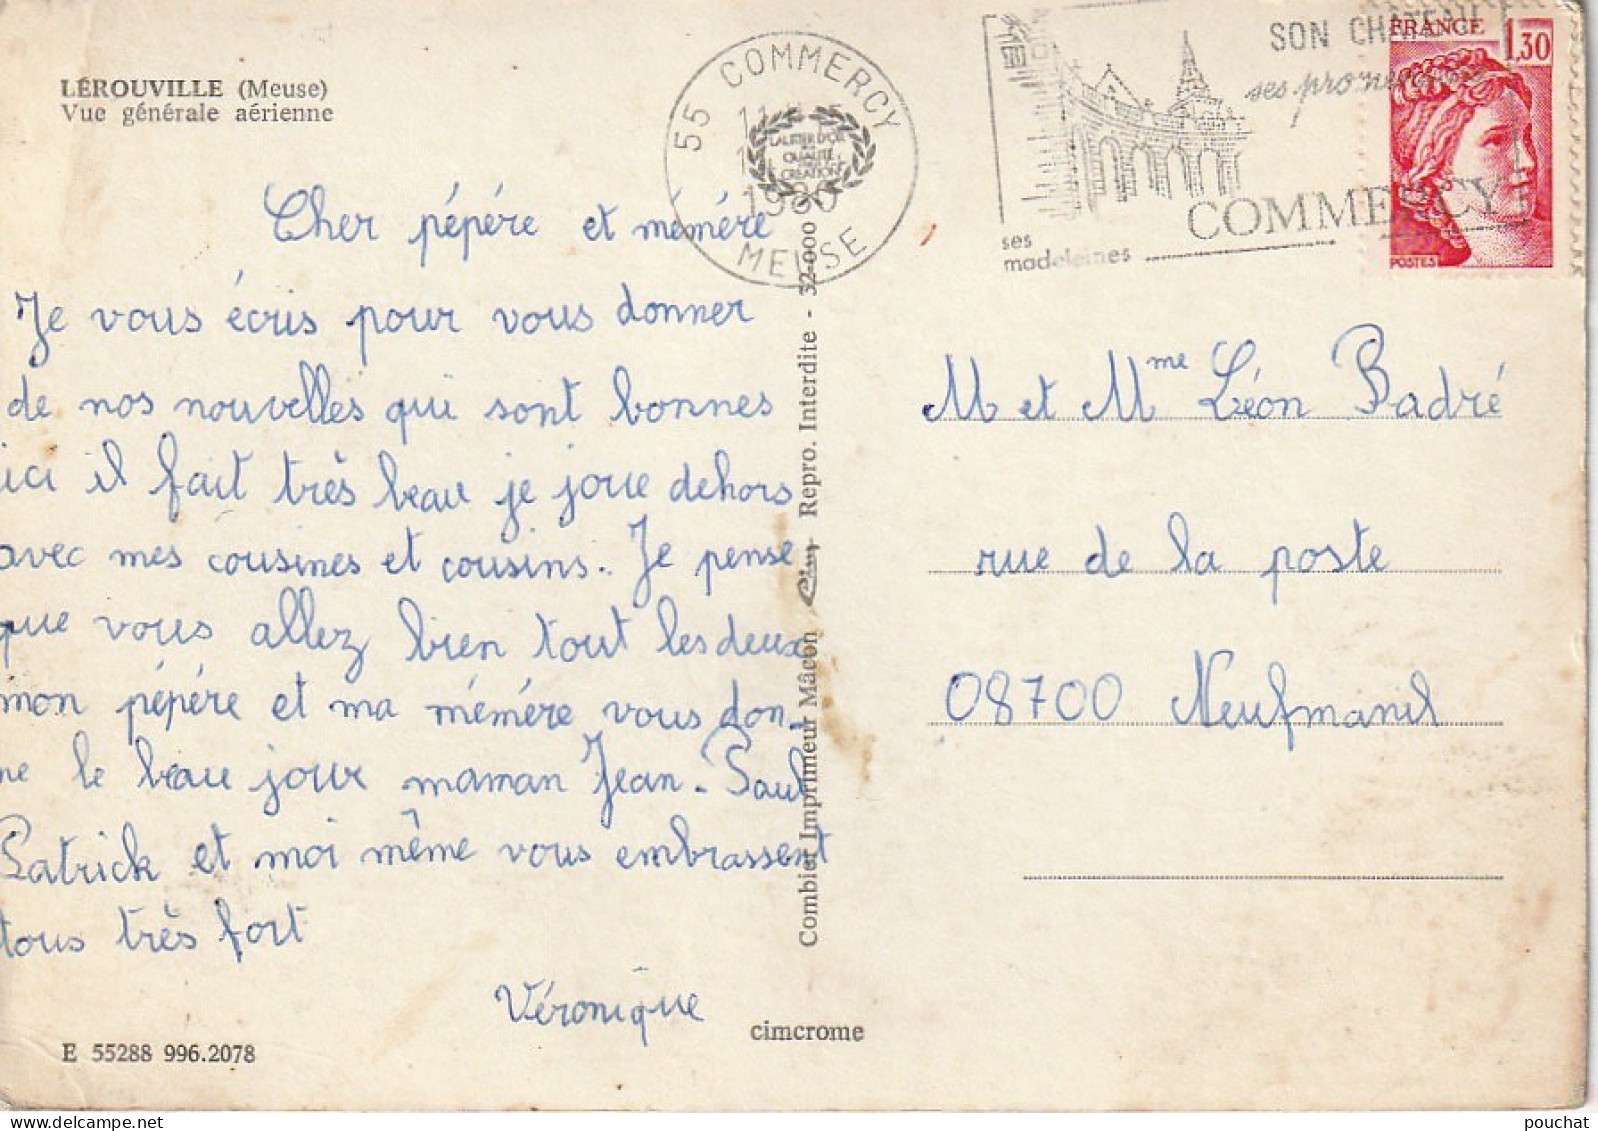 LÉROUVILLE (Meuse)
Vue générale aérienne
Cher pépére et mémére
Je vous écris pour vous donner
de nos nouvelles qui sont bonnes
ici il fait très beau je joue dehors
avec mes cousines et cousins. Je pense
que vous allez bien tout les deux
mon pépére et ma mémére vous don-
ne le beau jour maman Jean-Paul
Patrick et moi même vous embrassent
tous très fort
Véronique
E 55288 996.2078
cimcrome
Combier Imprimeur Mâcon Cim Repro. Interdite - 32-000
55 COMMERCY
1980
MEUSE
LAURIER D'OR
QUALITÉ
CRÉATION
SON CHATEAU
ses
ses madeleines
COMMERCY
FRANCE 1,30
POSTES
M et Mme Léon Badré
rue de la poste
08700 Neufmanil
pouchat